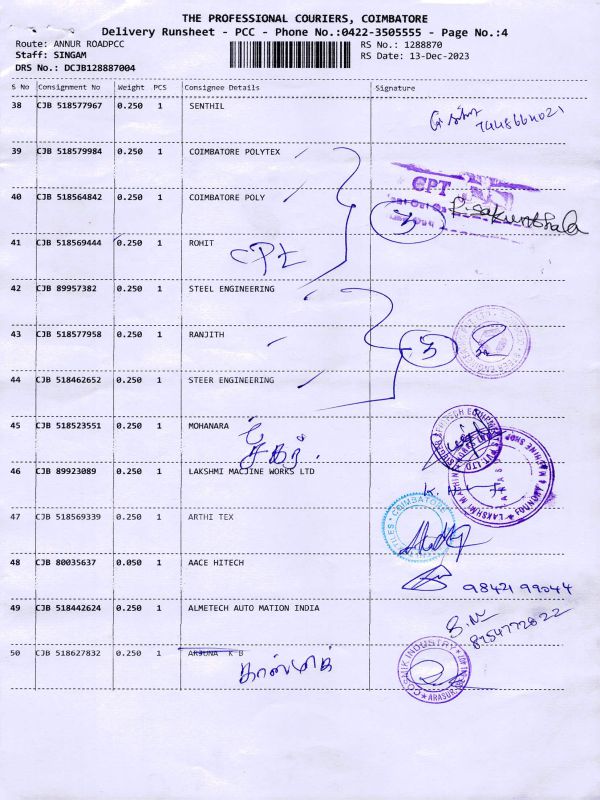 THE PROFESSIONAL COURIERS, COIMBATORE
Delivery Runsheet - PCC - Phone No.:0422-3505555 - Page No.:4
Route: ANNUR ROADPCC RS No.: 1288870
Staff: SINGAM RS Date: 13-Dec-2023
DRS No.: DCJB128887004
S No Consignment No Weight PCS Consignee Details Signature
38 CJB 518577967 0.250 1 SENTHIL
39 CJB 518579984 0.250 1 COIMBATORE POLYTEX
CPT
40 CJB 518564842 0.250 1 COIMBATORE POLY 3 R. sakunthala
41 CJB 518569444 0.250 1 ROHIT
CPT
42 CJB 89957382 0.250 1 STEEL ENGINEERING
43 CJB 518577958 0.250 1 RANJITH 3
44 CJB 518462652 0.250 1 STEER ENGINEERING
45 CJB 518523551 0.250 1 MOHANARA
46 CJB 89923089 0.250 1 LAKSHMI MACJINE WORKS LTD
LAKSHMI MACHINE
FOUNDRY
MACHINE SHOP
47 CJB 518569339 0.250 1 ARTHI TEX
COIMBATORE
48 CJB 80035637 0.050 1 AACE HITECH
98421 99044
49 CJB 518442624 0.250 1 ALMETECH AUTO MATION INDIA
8754772822
50 CJB 518627832 0.250 1 ARJUNA K B
COSMIK INDUSTRY
ARASUR